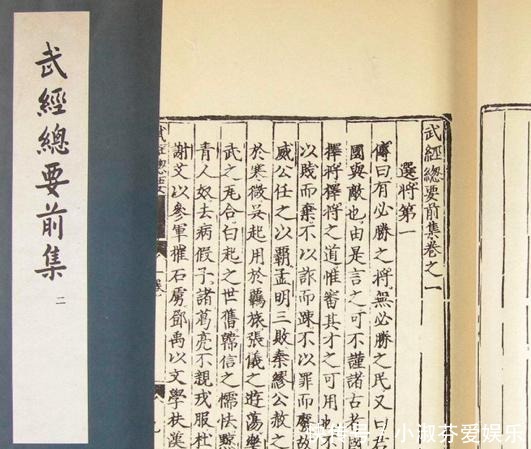 武經總要前集
二
武經總要前集卷之一
選將第一
傳曰有必勝之將無必勝之民又
國與敵也由是言之可不謹諸古
擇將擇將之道惟審其才之可用也不
以賤而棄不以詐而踈不以罪而廢故
威公任之以霸孟明三敗秦繆公赦之
於寒微吳起用於羈旅張儀之遊蕩樂
武之死谷白起之世舊韓信之懦怯黥
青人奴去病假子諸葛亮不親戎服杜
謝艾以參軍摧石虜鄧禹以文學扶漢
武經總要
小淑芬爱娱乐